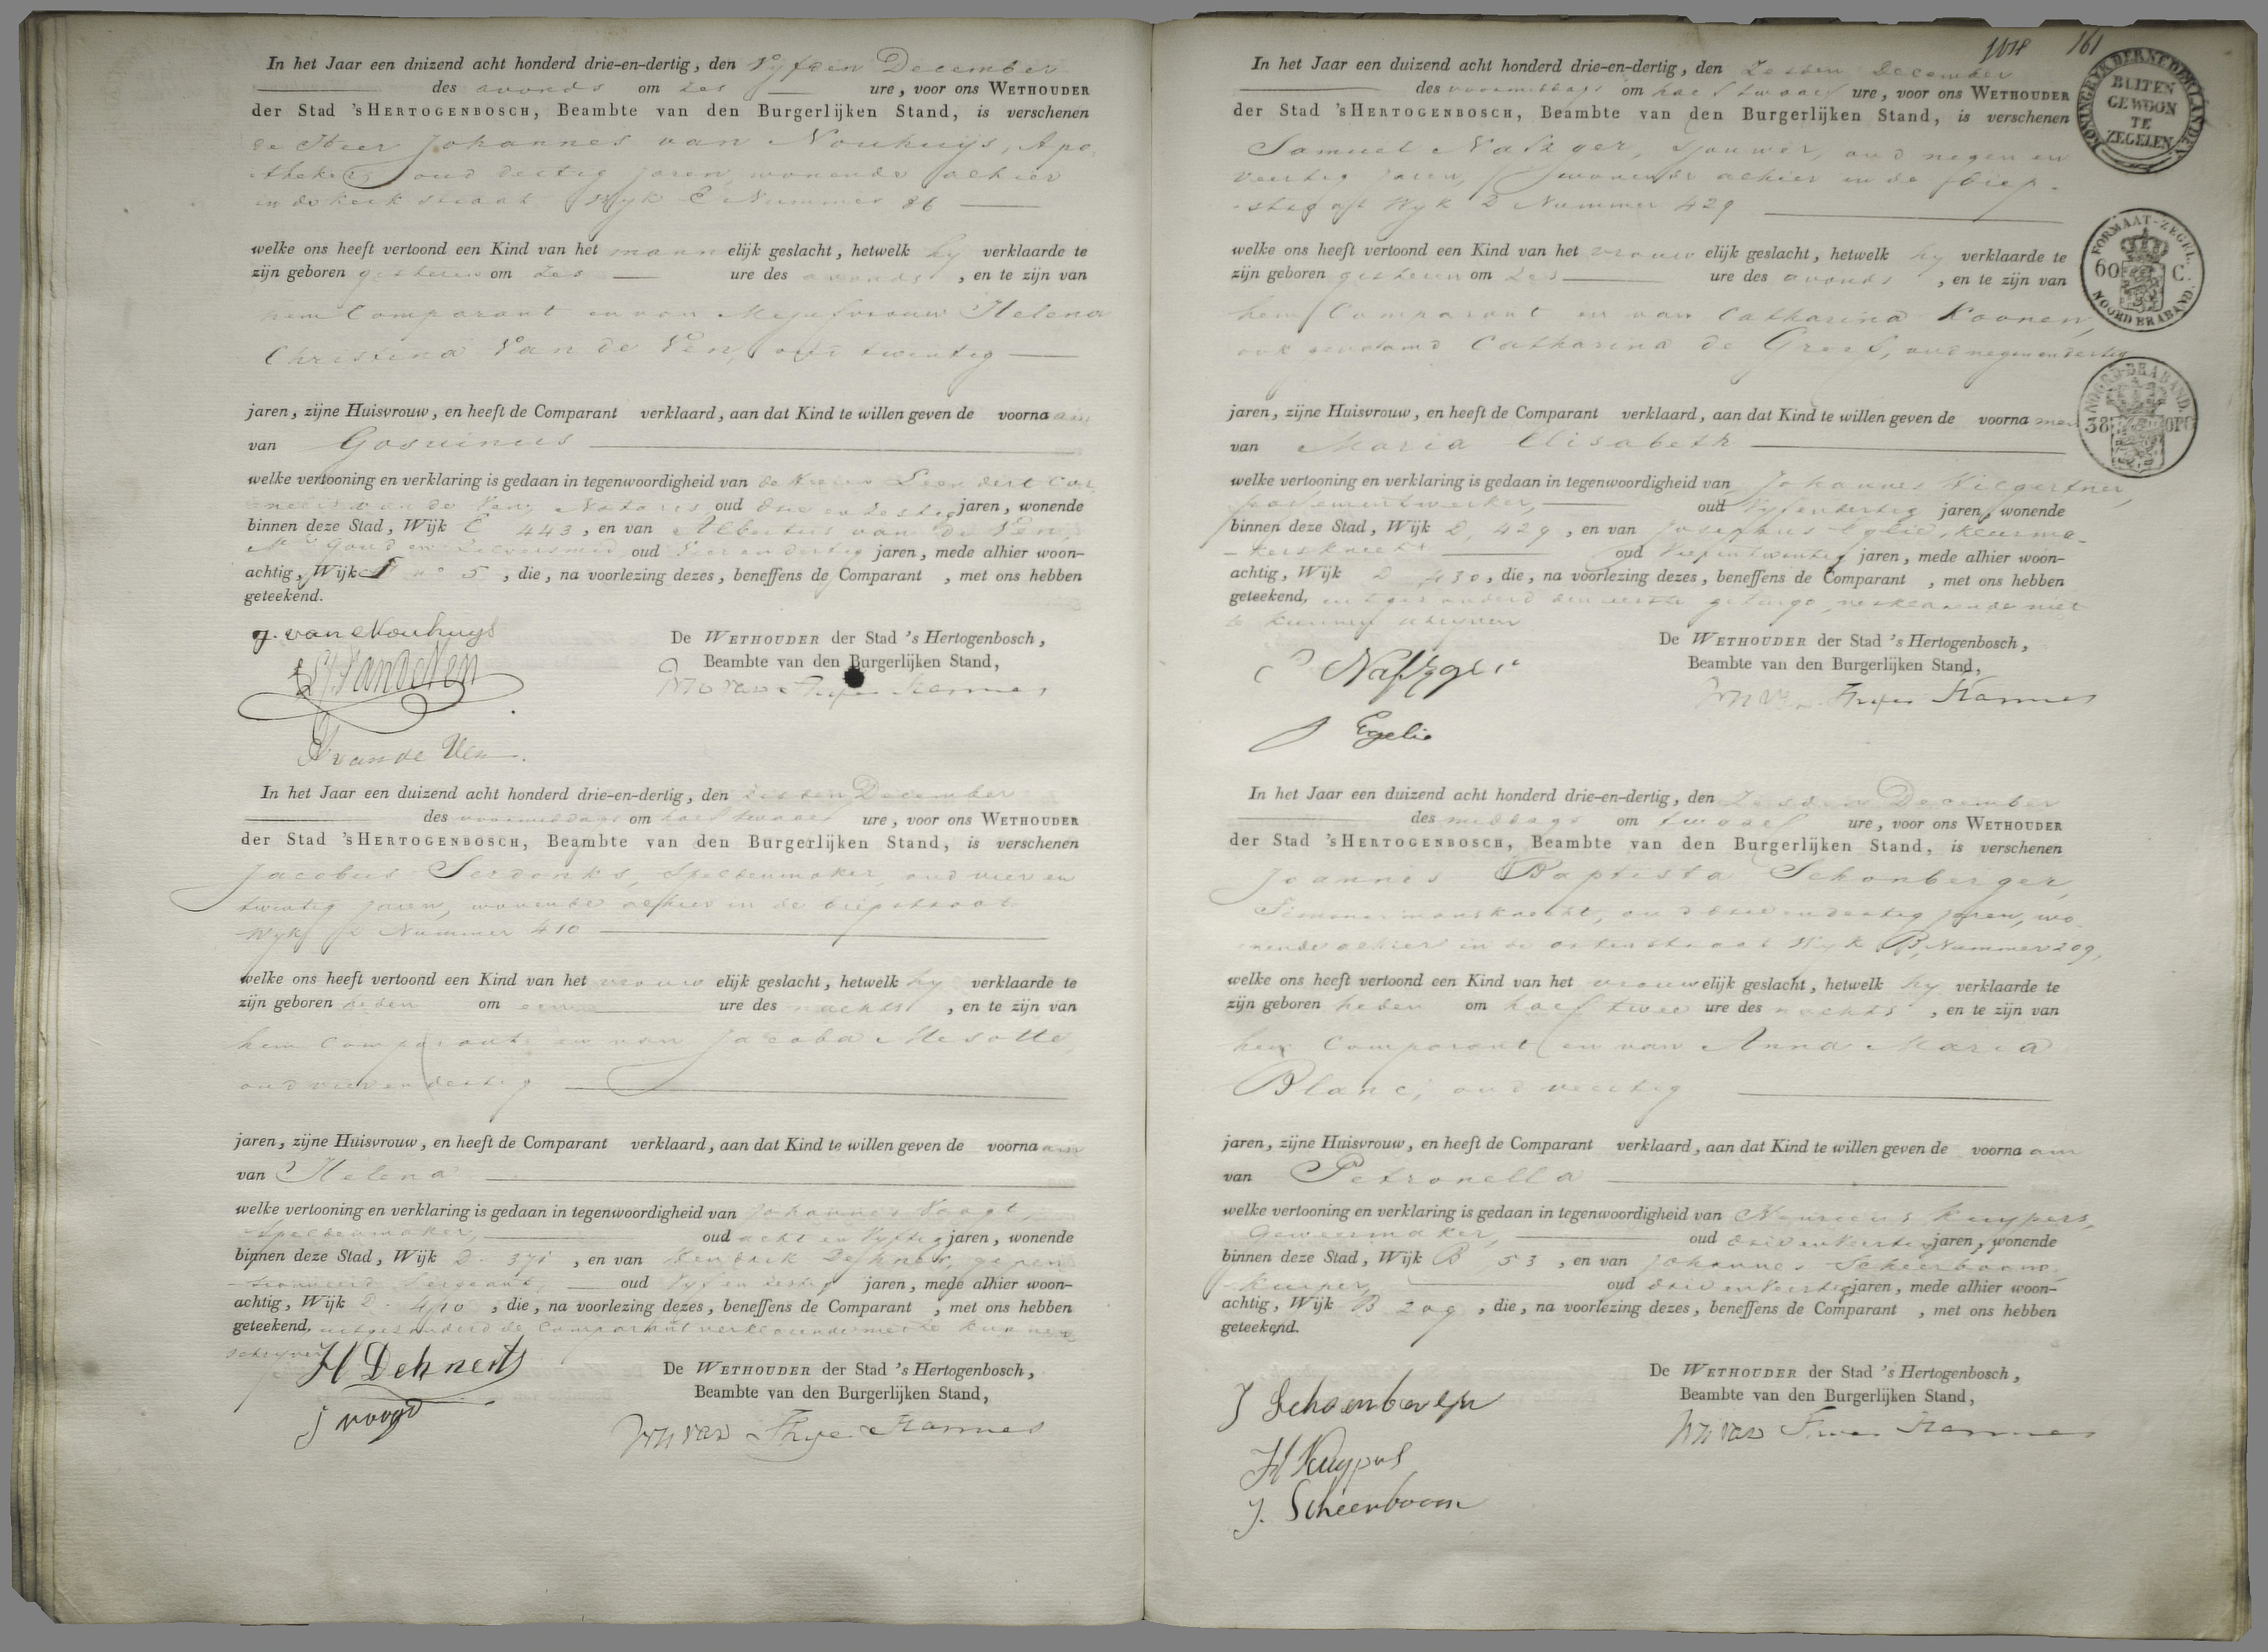 In het Jaar een duizend acht honderd drie-en-dertig, den Vyfden December
des avonds om zes ure, voor ons WETHOUDER
der Stad 's HERTOGENBOSCH, Beambte van den Burgerlijken Stand, is verschenen
de Heer Johannes van Nouhuijs, Apo-
theker, oud dertig jaren, wonende alhier
in de kerkstraat Wyk E Nummer 86
welke ons heeft vertoond een Kind van het mannelijk geslacht, hetwelk hy verklaarde te
zijn geboren gisteren om zes ure des avonds, en te zijn van
hem Comparant en van Mejufvrouw Helena
Christina Van de Ven, oud twintig
jaren, zijne Huisvrouw, en heeft de Comparant verklaard, aan dat Kind te willen geven de voornaam
van Gosuinus
welke vertooning en verklaring is gedaan in tegenwoordigheid van de Heeren Leendert Cor-
van de Ven, Notaris oud drie en zestig jaren, wonende
binnen deze Stad, Wijk C 443, en van Albertus van de Ven,
Mr Goud en Zilversmid, oud vier en dertig jaren, mede alhier woon-
achtig, Wijk no 5, die, na voorlezing dezes, beneffens de Comparant, met ons hebben
geteekend.
J. van Nouhuys
De WETHOUDER der Stad 's Hertogenbosch,
Beambte van den Burgerlijken Stand,
van de Ven
van de Ven
In het Jaar een duizend acht honderd drie-en-dertig, den zesden December
des voormiddags om half twaalf ure, voor ons WETHOUDER
der Stad 's HERTOGENBOSCH, Beambte van den Burgerlijken Stand, is verschenen
Jacobus Serdonks, Speldenmaker, oud vier en
twintig jaren, wonende alhier in de diepstraat
Wyk D Nummer 410
welke ons heeft vertoond een Kind van het vrouwelijk geslacht, hetwelk hy verklaarde te
zijn geboren heden om een ure des nachts, en te zijn van
hem Comparant en van Jacoba Mesotte
oud vier en dertig
jaren, zijne Huisvrouw, en heeft de Comparant verklaard, aan dat Kind te willen geven de voornaam
van Helena
welke vertooning en verklaring is gedaan in tegenwoordigheid van Johannes Voogt,
Speldenmaker, oud acht en vyftig jaren, wonende
binnen deze Stad, Wijk D. 371, en van Hendrik Dehnerts, gepen-
sioneerd Sergeant, oud vyf en zestig jaren, mede alhier woon-
achtig, Wijk D. 410, die, na voorlezing dezes, beneffens de Comparant, met ons hebben
geteekend, uitgezonderd de Comparant verklarende niet te kunnen
schryven
H Dehnerts
J voogd
De WETHOUDER der Stad 's Hertogenbosch,
Beambte van den Burgerlijken Stand,
161
In het Jaar een duizend acht honderd drie-en-dertig, den Zesden December
des voormiddags om half twaalf ure, voor ons WETHOUDER
der Stad 's HERTOGENBOSCH, Beambte van den Burgerlijken Stand, is verschenen
Samuel Nafzger, Sjouwer, oud negen en
veertig jaren, wonende alhier in de diep-
straat Wyk D Nummer 429
welke ons heeft vertoond een Kind van het vrouwelijk geslacht, hetwelk hy verklaarde te
zijn geboren gisteren om zes ure des avonds, en te zijn van
hem Comparant en van Catharina Koonen,
ook genaamd Catharina de Greef, oud negen en dertig
jaren, zijne Huisvrouw, en heeft de Comparant verklaard, aan dat Kind te willen geven de voornamen
van Maria Elisabeth
welke vertooning en verklaring is gedaan in tegenwoordigheid van Johannes
passementwerker, oud vyf en dertig jaren, wonende
binnen deze Stad, Wijk D, 429, en van Josephus Egelie, kleerma-
kersknecht oud en twintig jaren, mede alhier woon-
achtig, Wijk D 430, die, na voorlezing dezes, beneffens de Comparant, met ons hebben
geteekend, uitgezonderd den eerste getuige verklarende niet
te kunnen schryven
S Nafzger
J Egelie
De WETHOUDER der Stad 's Hertogenbosch,
Beambte van den Burgerlijken Stand,
KONINGRYK DER NEDERLANDEN
BUITEN
GEWOON
TE
ZEGELEN
FORMAAT-ZEGEL.
60 C.
NOORD BRABAND.
NOORD-BRABAND.
38 OPC
In het Jaar een duizend acht honderd drie-en-dertig, den Zesden December
des middags om twaalf ure, voor ons WETHOUDER
der Stad 's HERTOGENBOSCH, Beambte van den Burgerlijken Stand, is verschenen
Joannes Baptista Schonberger,
Timmermansknecht, oud drie en dertig jaren, wo-
nende alhier in de ortenstraat Wyk B, Nummer 209,
welke ons heeft vertoond een Kind van het vrouwelijk geslacht, hetwelk hy verklaarde te
zijn geboren heden om half twee ure des nachts, en te zijn van
hem Comparant en van Anna Maria
Blanc, oud veertig
jaren, zijne Huisvrouw, en heeft de Comparant verklaard, aan dat Kind te willen geven de voornaam
van Petronella
welke vertooning en verklaring is gedaan in tegenwoordigheid van Henricus Kuypers,
Geweermaker, oud drie en veertig jaren, wonende
binnen deze Stad, Wijk B 53, en van Johannes Scheerboom,
kuiper, oud drie en veertig jaren, mede alhier woon-
achtig, Wijk B 209, die, na voorlezing dezes, beneffens de Comparant, met ons hebben
geteekend.
J Schoenberger
H Kuypers
J. Scheerboom
De WETHOUDER der Stad 's Hertogenbosch,
Beambte van den Burgerlijken Stand,